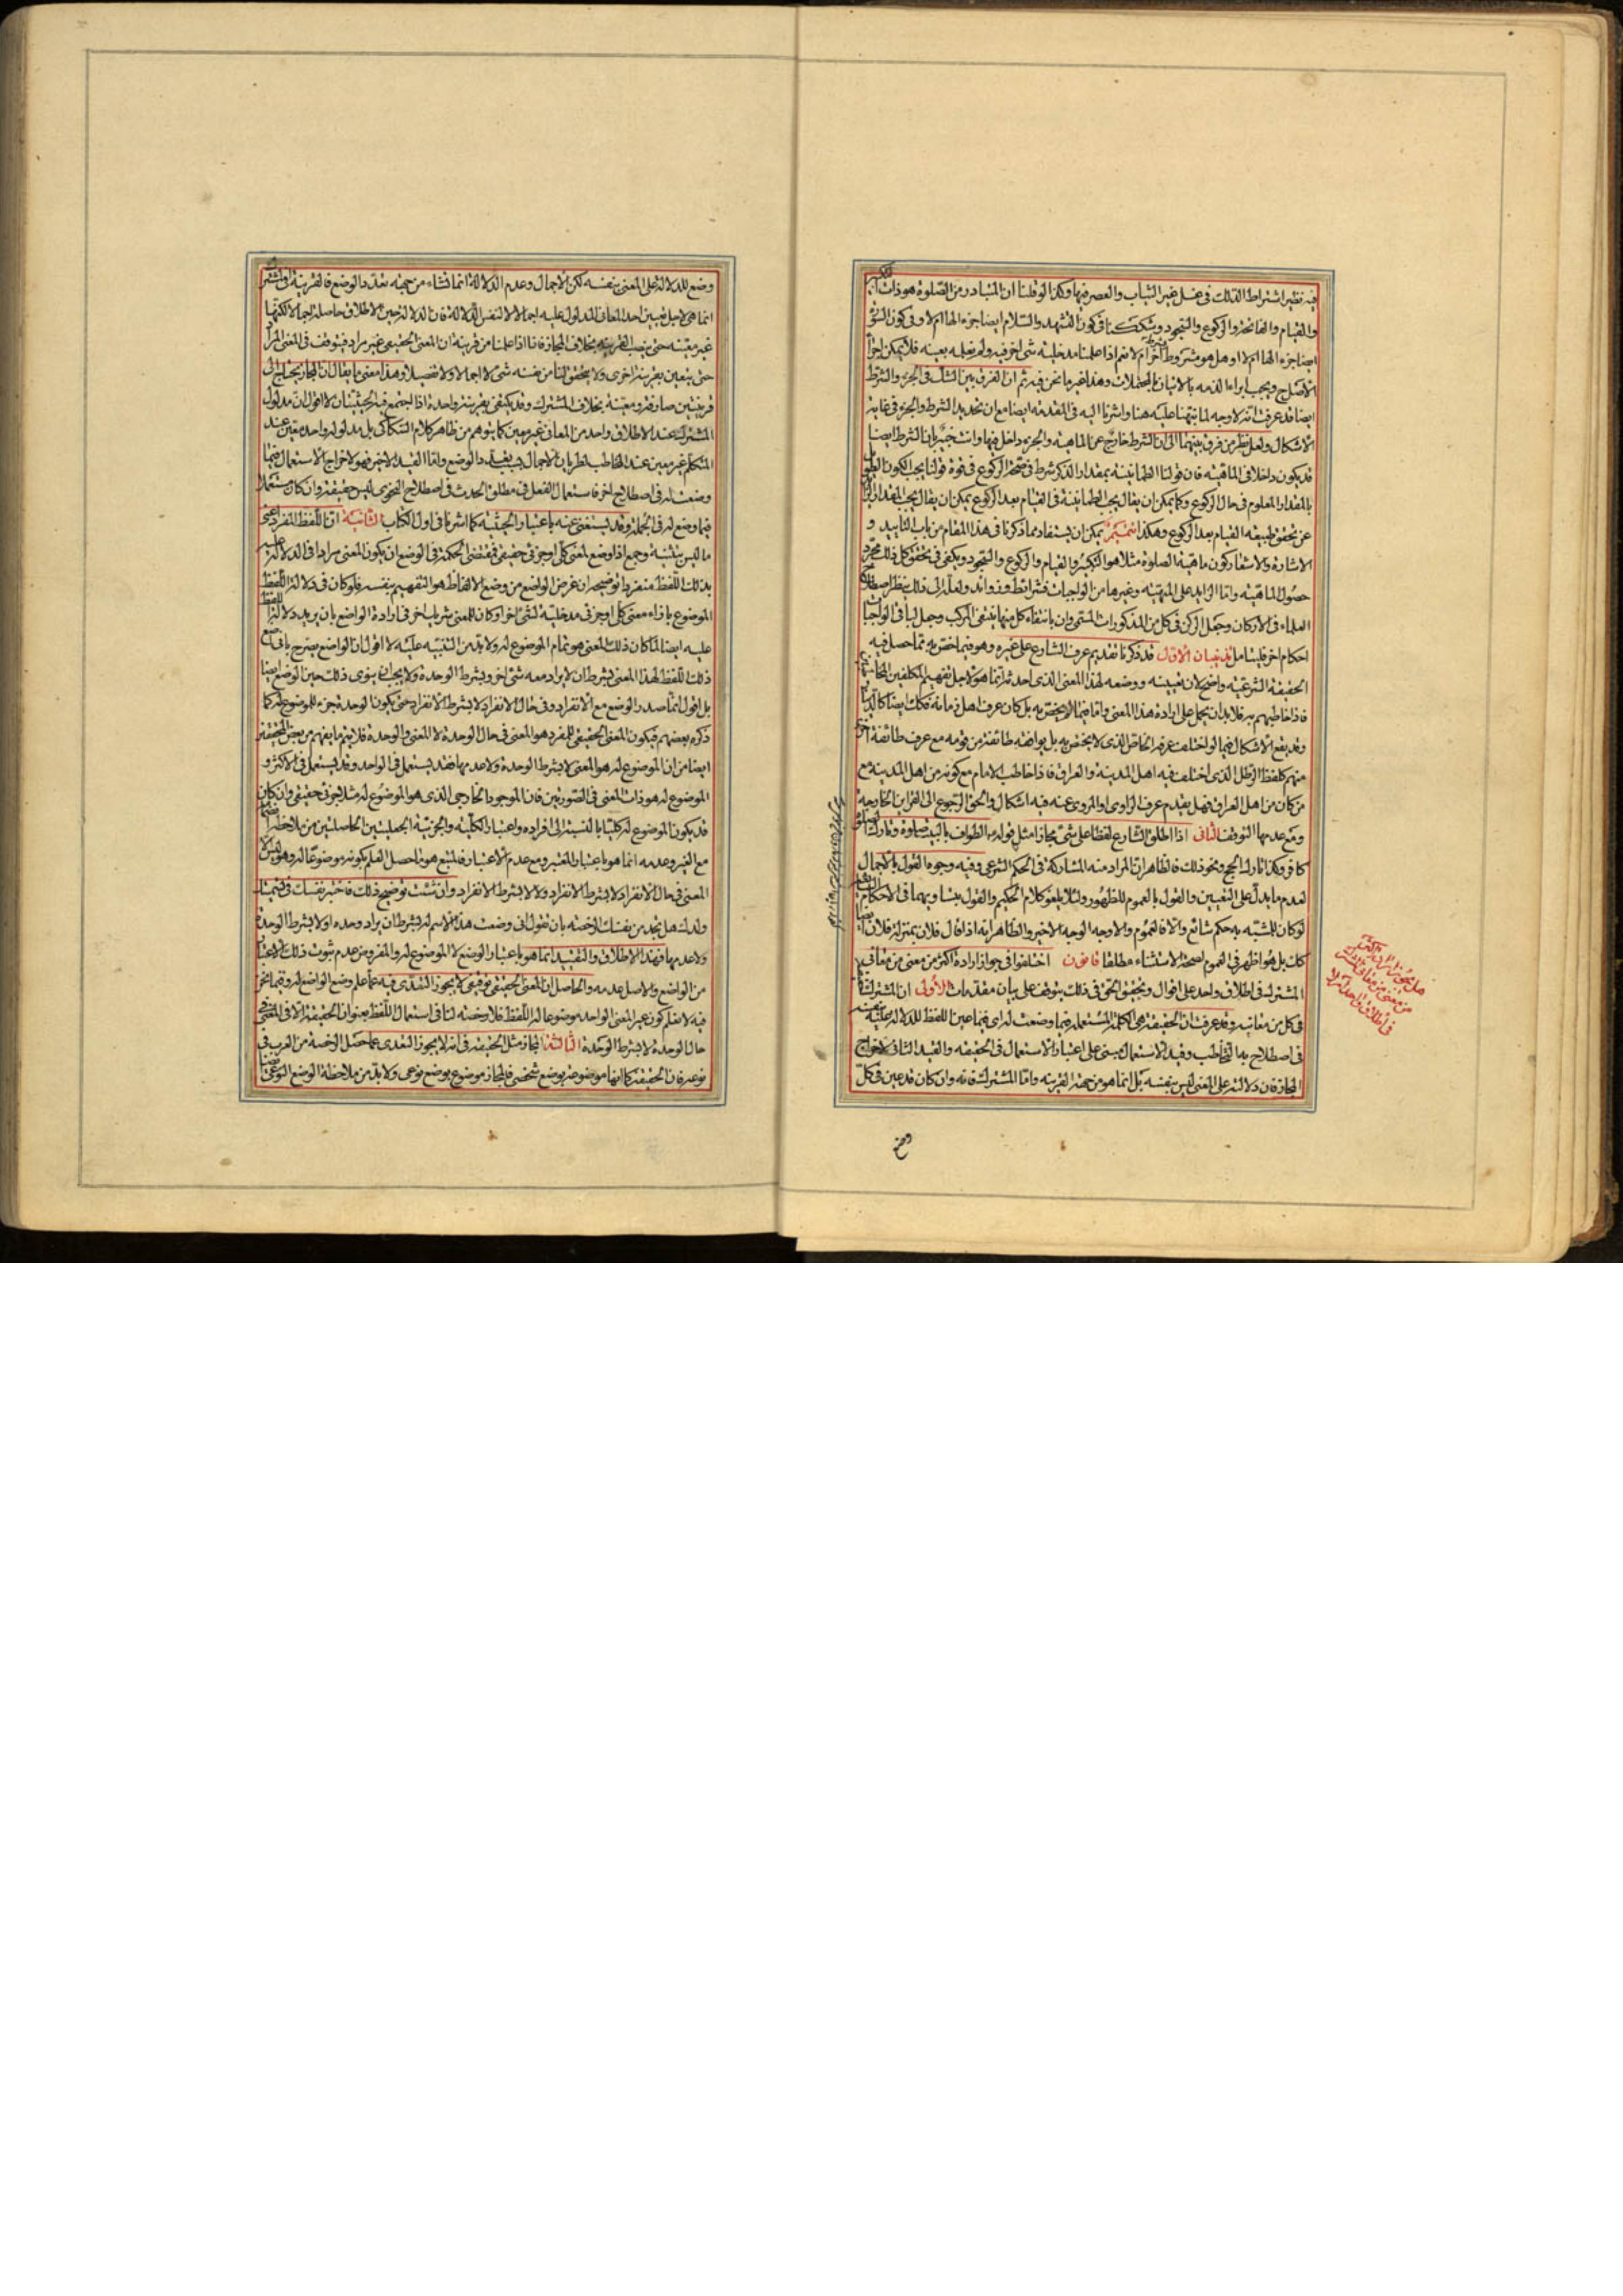 فيه نظير اشتراط الدلك في غسل غير الثياب والعصر فيها وكذا لو قلنا ان المتبادر من الصلوة هو ذات التكبير
والقيام والفاتحة والركوع والسجود وشككنا في كون التشهد والسلام ايضا جزء لها ام لا وفي كون
ايضا جزء لها ام لا او هل هو مشروط ام لا نعم اذا علمنا مدخلية شئ اخر فيه ولم نعلمه بعينه فلا يمكن اجراء
الاصل ويجب ابراء الذمه بالاتيان بالمحتملات وهذا غير ما نحن فيه ثم ان الفرق بين الشك في الجزء والشرط
ايضا قد عرفت انه لا وجه له لما نبهنا عليه هنا واشرنا اليه في المقدمه ايضا مع ان تحديد الشرط والجزء في غاية
الاشكال ولعل نظر من فرق بينهما الى ان الشرط خارج عن الماهية والجزء داخل فيها وانت خبير بان الشرط ايضا
قد يكون داخلا في الماهية فان قولنا الطمانينة بمقدار الذكر شرط في صحة الركوع في قوة قولنا يجب الكون
بالمقدار المعلوم في حال الركوع وكما يمكن ان يقال يجب الطمانينة في القيام بعد الركوع يمكن ان يقال يجب المقدار الزايد
عن تحقق طبيعة القيام بعد الركوع وهكذا تتميم يمكن ان يستفاد مما ذكرنا في هذا المقام من باب التاييد و
الاشارة والاشعار كون ماهية الصلوة مثلا هو التكبير والقيام والركوع والسجود ويكفي في تحقق كل ذلك مجرد
حصول الماهية واما الزايد على المهية وغيرها من الواجبات فشرائط وزوائد ولعله الى ذلك ينظر اصطلاح
العلماء في الاركان وجعل الركن في كل من المذكورات المسمى وان بانتفاء كل منها ينتفي المركب وجعل لباقي الواجبات
احكام اخر فليتامل تذنيبان الاول قد ذكرنا تقديم عرف الشارع على غيره وهو فيما اختص به مما حصل فيه
الحقيقة الشرعية واضح لان تعيينه ووضعه لهذا المعنى الذي احدثه انما هو لاجل تفهيم المكلفين
فاذا خاطبهم به فلا بد ان يحمل على ارادة هذا المعنى واما فيما لا يختص به بل كان عرف اهل زمانه فكك ايضا
وقد يقع الاشكال فيما لو اختلف عرفه الخاص الذي لا يختص به بل يوافقه طائفة من قومه مع عرف طائفة اخرى
منهم كلفظ الرطل الذي اختلف فيه اهل المدينة والعراق فاذا خاطب الامام مع كونه من اهل المدينة مع
من كان من اهل العراق فهل يقدم عرف الراوي او المروي عنه فيه اشكال والحق الرجوع الى القراين الخارجية
ومع عدمها التوقف الثاني اذا اطلق الشارع لفظا على شئ مجازا مثل قوله الطواف بالبيت صلوة وتارك الصلوة
كافر وكذا تارك الحج ونحو ذلك فالظاهر ان المراد منه المشاركة في الحكم الشرعي وفيه وجوه القول بالاجمال
لعدم ما يدل على التعيين والقول بالعموم للظهور ولئلا يلغو كلام الحكيم والقول بتساويهما في الاحكام الشايعة
لو كان للمشبه به حكم شائع والا فالعموم والاوجه الوجه الاخير والظاهر انه اذا قال فلان بمنزلة فلان ايضا
كك بل هو اظهر في العموم لصحة الاستثناء مطلقا قانون اختلفوا في جواز ارادة اكثر من معنى من معاني
المشترك في اطلاق واحد على اقوال وتحقيق الحق في ذلك يتوقف على بيان مقدمات الاولى ان المشترك حقيقة
في كل من معانيه وقد عرفت ان الحقيقة هي الكلمة المستعملة فيما وضعت له اي فيما عين اللفظ للدلالة عليه بنفسه
في اصطلاح به التخاطب وقيد الاستعمال مبني على اعتبار الاستعمال في الحقيقة والقيد الثاني لاخراج
المجاز فان دلالته على المعنى ليس بنفسه بل انما هو من جهة القرينة واما المشترك فانه وان كان قد عين في كل
وضع
وضع للدلالة على المعنى بنفسه لكن الاجمال وعدم الدلالة انما نشاء من جهة تعدد الوضع فالقرينة في المشترك
انما هي لاجل تعيين احد المعاني المدلول عليه اجمالا لا لنفس الدلالة فان الدلالة حين الاطلاق حاصلة اجمالا لكنها
غير معينه حتى ينصب القرينة بخلاف المجاز فانا اذا علمنا من قرينة ان المعنى الحقيقي غير مراد فيتوقف في المعنى المراد
حتى يتعين بقرينة اخرى ولا يتحقق لنا من نفسه شئ لا اجمالا ولا تفصيلا وهذا معنى ما يقال ان المجاز يحتاج الى
قرينتين صارفة ومعينة بخلاف المشترك وقد يكتفي بقرينة واحدة اذا اجتمع فيه الحيثيتان لا اقول ان مدلول
المشترك عند الاطلاق واحد من المعاني غير معين كما يتوهم من ظاهر كلام السكاكي بل مدلوله واحد معين عند
المتكلم غير معين عند المخاطب لطريان الاجمال بسبب تعدد الوضع واما القيد الاخير فهو لاخراج الاستعمال فيما
وضعت له في اصطلاح اخر فاستعمال الفعل في مطلق الحدث في اصطلاح النحوي ليس حقيقة وان كان مستعملا
فيما وضع له في الجملة وقد يستغنى عنه باعتبار الحيثية كما اشرنا في اول الكتاب الثانية ان اللفظ المفرد اعني
ما ليس بتثنية وجمع اذا وضع لمعنى كلي او جزئي حقيقي فمقتضى الحكمة في الوضع ان يكون المعنى مرادا في الدلالة عليه
بذلك اللفظ منفردا توضيحه ان غرض الواضع من وضع الالفاظ هو التفهيم بنفسه فلو كان في دلالة اللفظ
الموضوع بازاء معنى كلي او جزئي مدخلية لشئ اخر او كان للمعنى شريك اخر في ارادة الواضع بان يريد دلالة اللفظ
عليه ايضا لما كان ذلك المعنى هو تمام الموضوع له ولا بد من التنبيه عليه لا اقول ان الواضع يصرح باني اضع
ذلك اللفظ لهذا المعنى بشرط ان لا يراد معه شئ اخر وبشرط الوحدة ولا يجب ان ينوي ذلك حين الوضع ايضا
بل اقول انما صدر الوضع مع الانفراد وفي حال الانفراد لا بشرط الانفراد حتى يكون الوحدة جزء للموضوع له كما
ذكره بعضهم فيكون المعنى الحقيقي للمفرد هو المعنى في حال الوحدة لا المعنى والوحدة فلا يتم ما يفهم من بعض المحققين
ايضا من ان الموضوع له هو المعنى لا بشرط الوحدة ولا عدمها فقد يستعمل في الواحد وقد يستعمل في الاكثر و
الموضوع له هو ذات المعنى في الصورتين فان الموجود الخارجي الذي هو الموضوع له مثلا جزئي حقيقي وان كان
قد يكون الموضوع له كليا بالنسبة الى افراده واعتبار الكلية والجزئية الجعليتين الحاصلتين من ملاحظة
مع الغير وعدمه انما هو باعتبار المعتبر ومع عدم الاعتبار فالمتبع هو ما حصل العلم بكونه موضوعا له وهو ليس الا
المعنى في حال الانفراد لا بشرط الانفراد ولا لا بشرط الانفراد وان شئت توضيح ذلك فاختبر نفسك في تسميتك
ولدك هل تجد من نفسك الرخصة بان تقول اني وضعت هذا الاسم له بشرط ان يراد وحده او لا بشرط الوحدة
ولا عدمها فهذا الاطلاق والتقييد انما هو باعتبار الوضع لا الموضوع له والمفروض عدم ثبوت ذلك الاعتبار
من الواضع والاصل عدمه والحاصل ان المعنى الحقيقي توقيفي لا يجوز التعدي فيه عما علم وضع الواضع له وفيما نحن
فيه لا نعلم كون غير المعنى الواحد موضوعا له اللفظ فلا رخصة لنا في استعمال اللفظ بعنوان الحقيقة الا في المعنى
حال الوحدة لا بشرط الوحدة الثالثة المجاز مثل الحقيقة في انه لا يجوز التعدي عما حصل الرخصة من العرب في
نوعه فان الحقيقة كما انها موضوعة بوضع شخصي فالمجاز موضوع بوضع نوعي ولا بد من ملاحظة الوضع النوعي